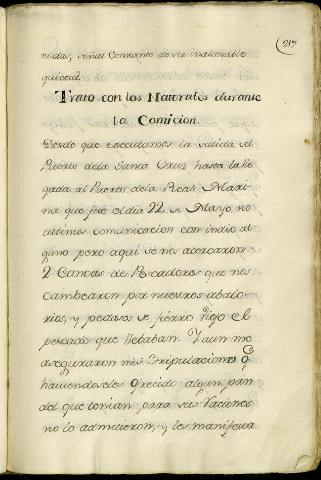 217
nuda, señal Constante de su inalterable
quietud.
Trato con los Naturales durante
la Comicion.
Desde que executamos la salida del
Puerto dela Santa Cruz hasta la lle
gada al Puerto dela Real Mari
na que fue el dia 22 de Mayo, no
tubimos comunicacion con indio al
guno pero aqui se nos acercaron
2 Canoas de Pescadores que nos
cambearon por nuestros abalo-
rios, y pedasos de fierro viejo el
pescado que lletaban. Y aun me
aseguraron mis tripulaciones q.
haviendoseles ofrecido algun pan
del que tenian para sus raciones
no lo admitieron, y les manifesta